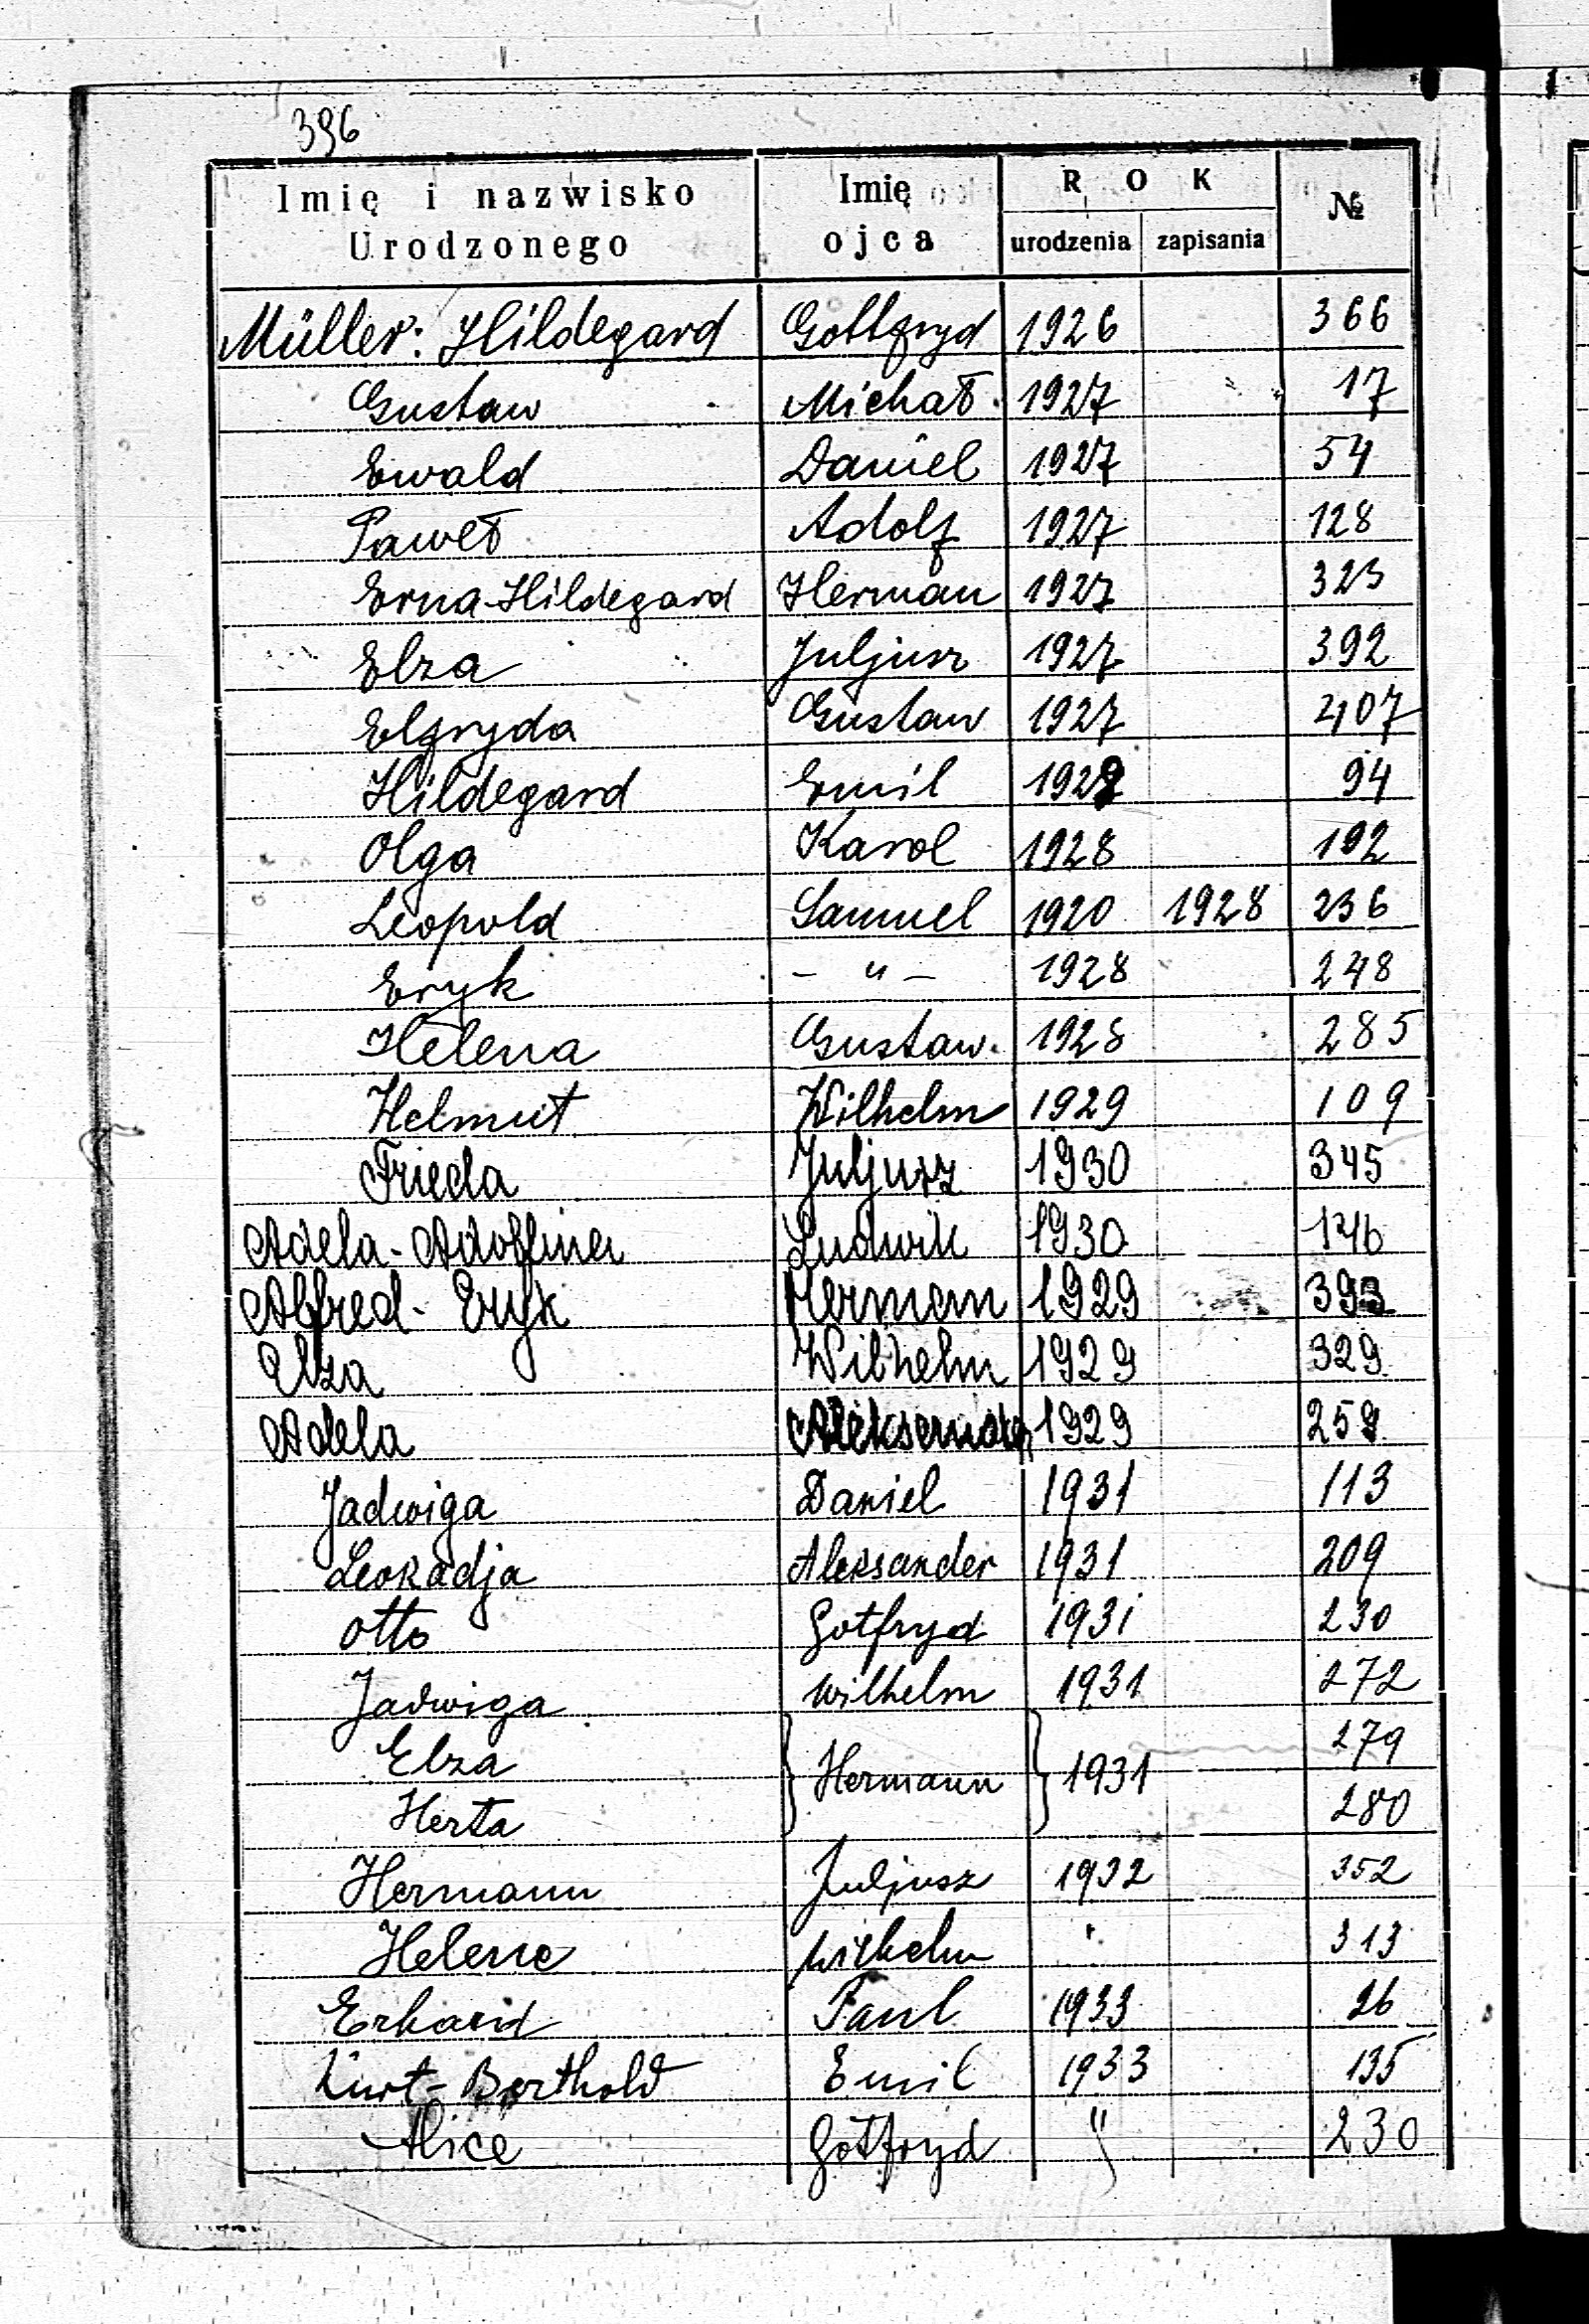 396
Imię i nazwisko Urodzonego | Imię ojca | ROK urodzenia | zapisania | №
Müller: Hildegard Gottfryd 1926 366
Gustaw Michał 1927 17
Ewald Daniel 1927 54
Paweł Adolf 1927 128
Erna-Hildegard Herman 1927 323
Elza Juljusz 1927 392
Elfryda Gustaw 1927 407
Hildegard Emil 94
Olga Karol 1928 192
Leopold Samuel 1920 1928 236
Eryk - " - 1928 248
Helena Gustaw. 1928 285
Helmut Wilhelm 1929 109
Frieda Juljusz 1930 345
Adela-Adolfina Ludwik 1930
Alfred-Eryk Herman 1929
Elza Wilhelm 1929 329
Adela Aleksander 1929 259
Jadwiga Daniel 1931 113
Leokadja Aleksander 1931 209
Otto Gotfryd 1931 230
Jadwiga Wilhelm 1931 272
Elza } Hermann } 1931 279
Herta 280
Hermann Juljusz 1932 352
Helene Wilhelm " 313
Erhard Paul 1933 26
Kurt-Berthold Emil 1933 135
Alice Gotfryd " 230